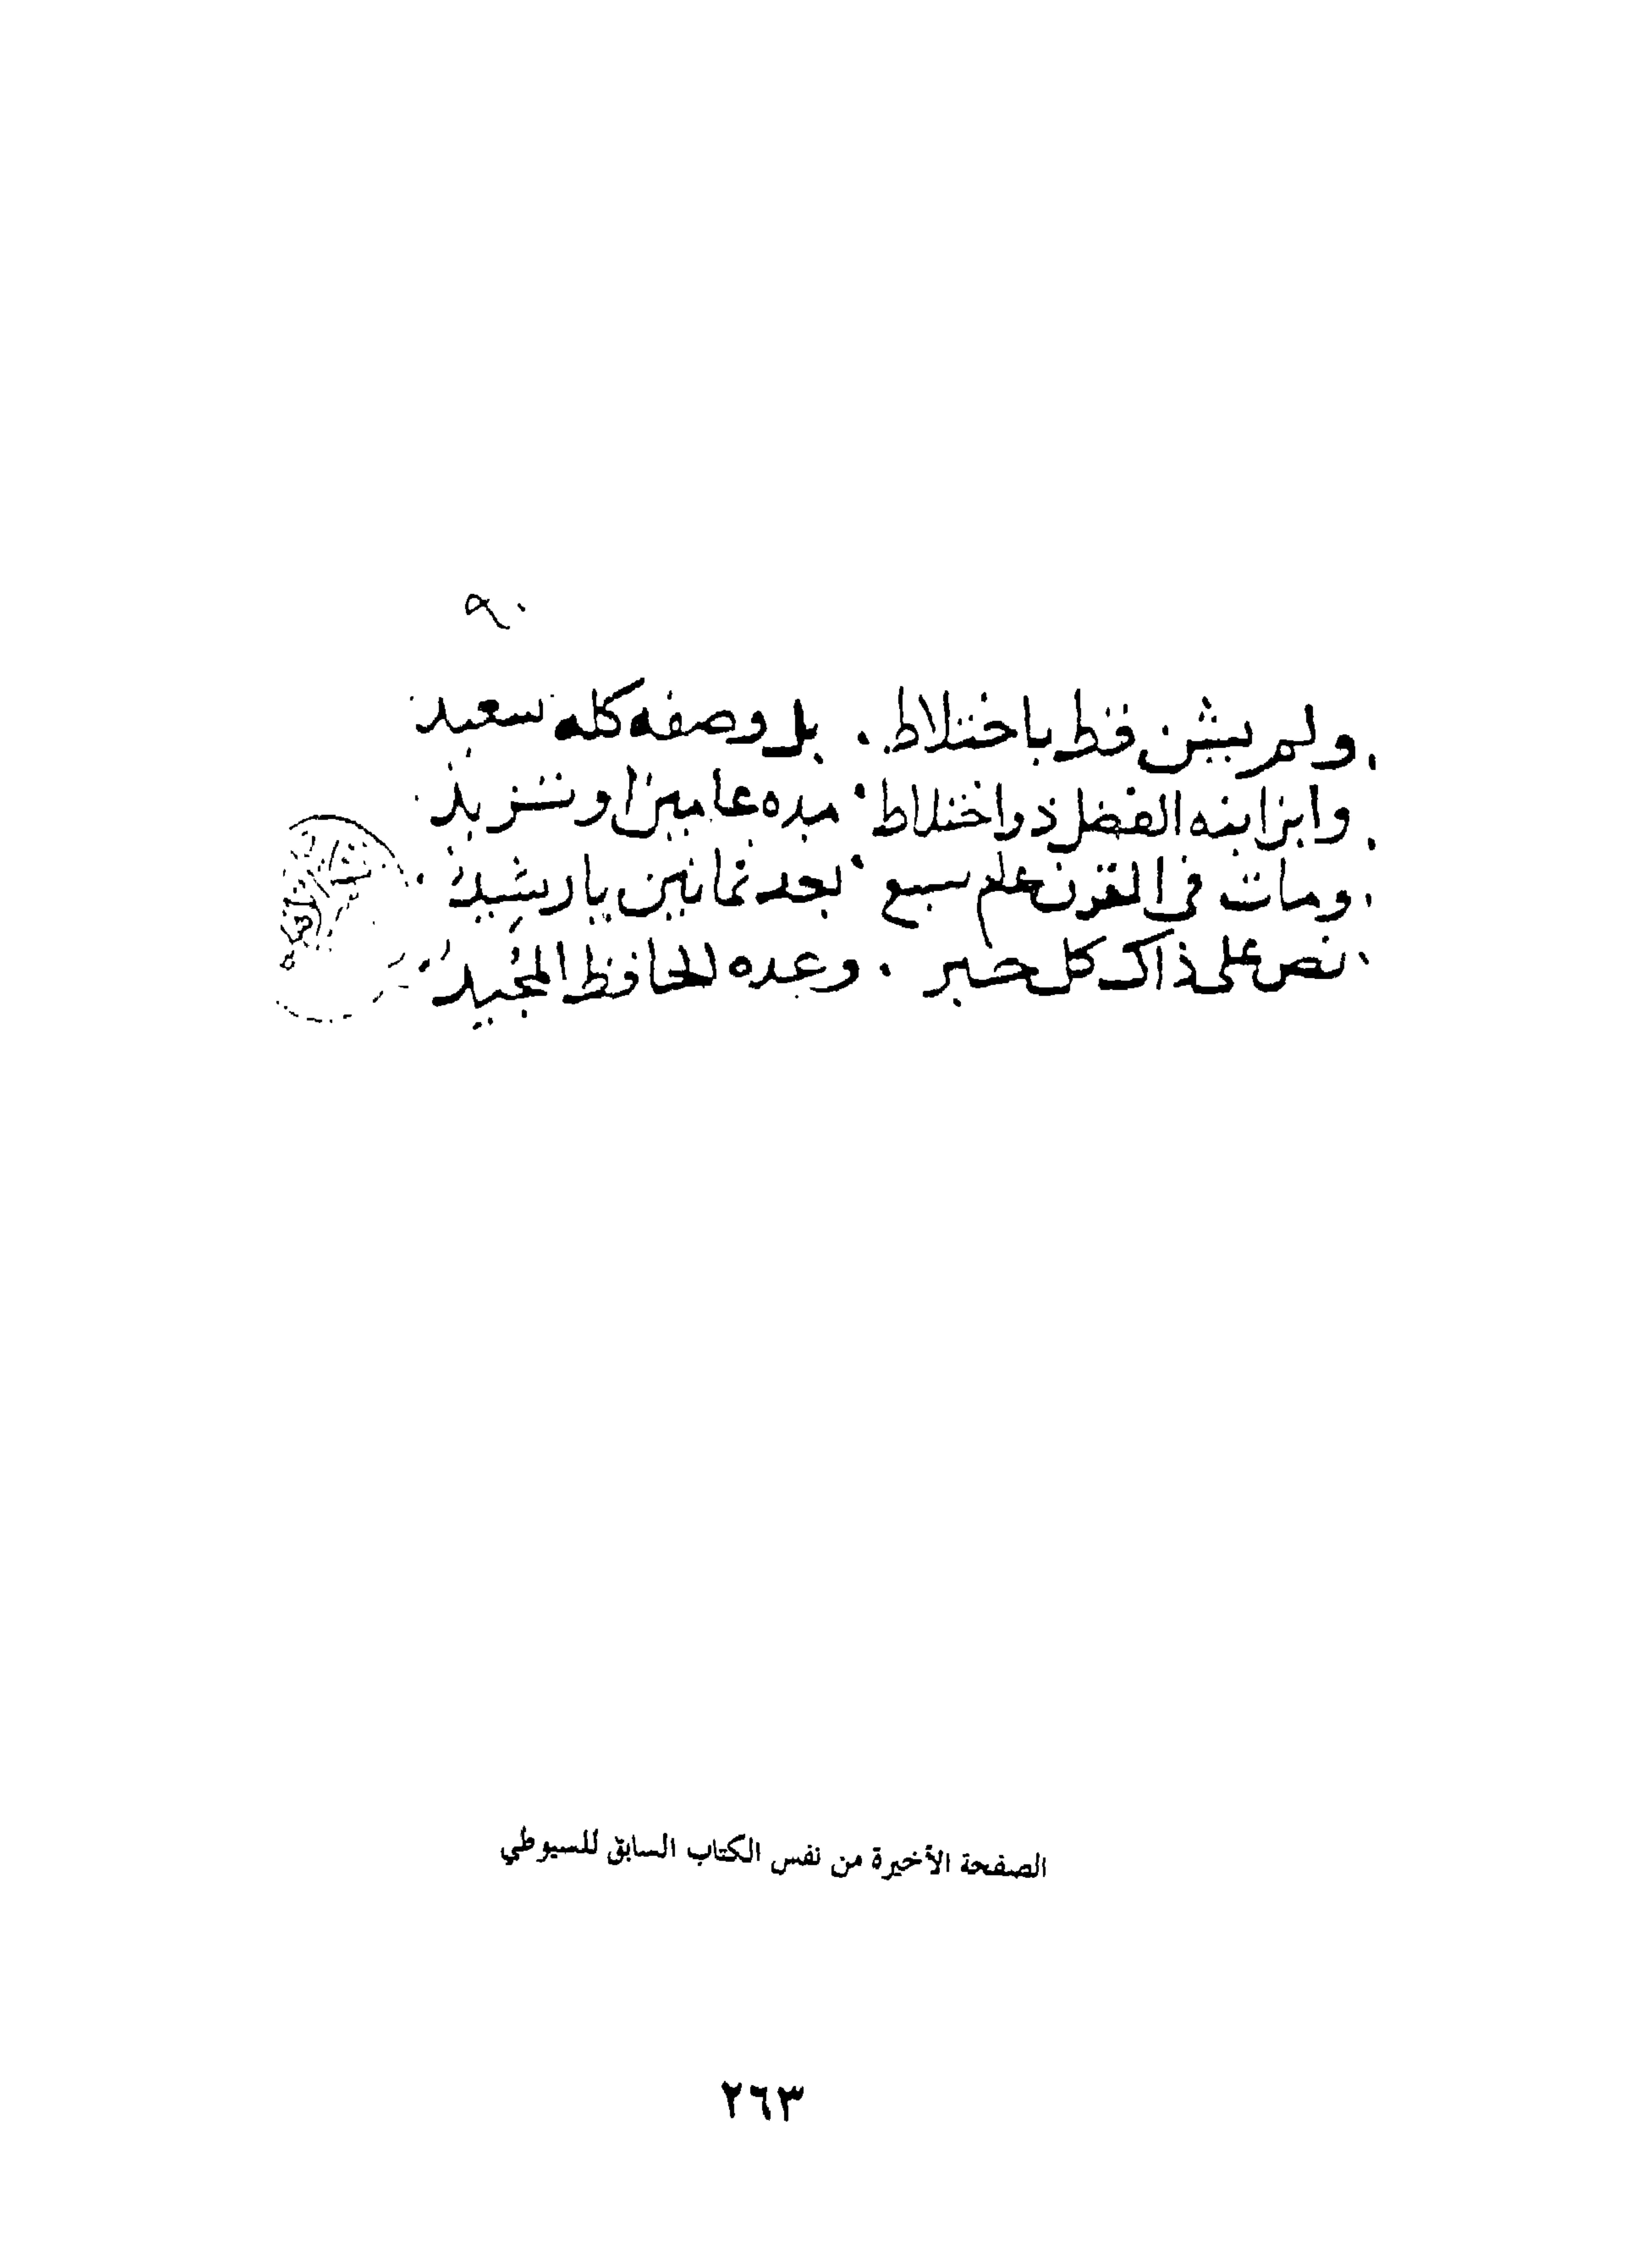 ٩٠
ولم يشن قط باختلاط . بل وصفه كله سعيد
وابن ابنه الفضل ذو اختلاط . مده عامين او تزيد
ومات في القرن عام سبع . بعد ثمانين يا رشيد
نص على ذاك كل حبر . وعده الحافظ المجيد
الصفحة الأخيرة من نفس الكتاب السابق للسيوطي
٢٦٣